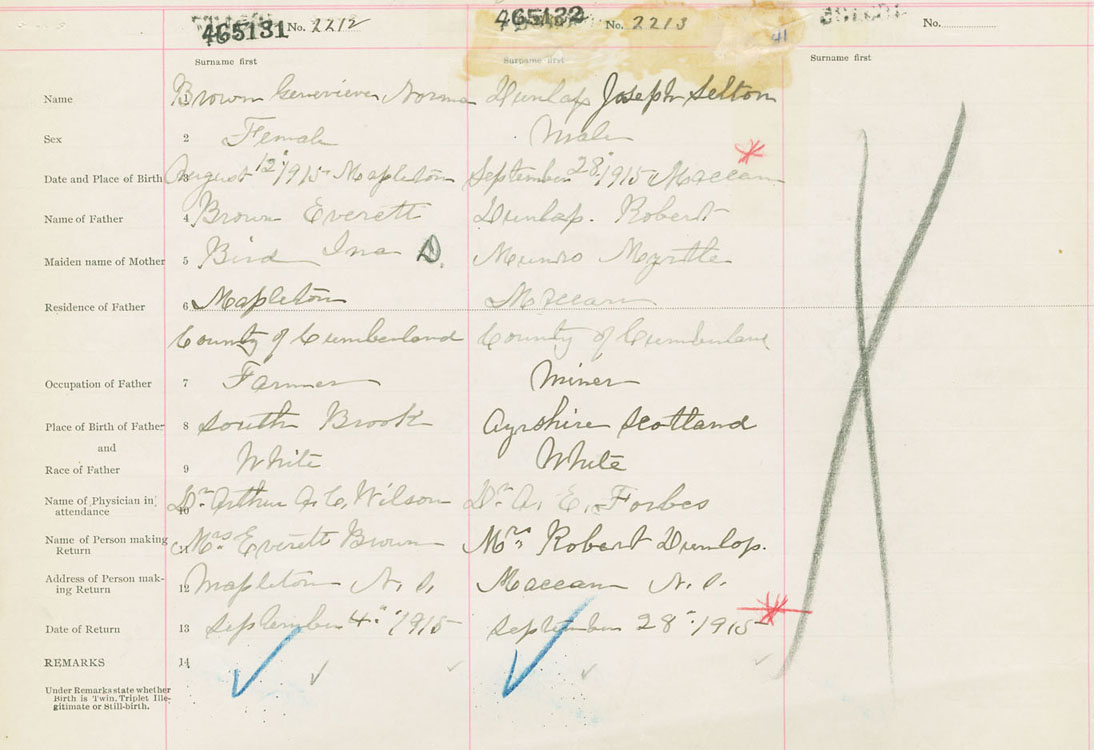 465131 No. 2212 465132 No. 2213 41 No.
Surname first Surname first Surname first
Name 1 Brown Genevieve Norma Dunlap Joseph Selton
Sex 2 Female Male
Date and Place of Birth 3 August 12" 1915 Mapleton September 28" 1915 Maccan
Name of Father 4 Brown Everett Dunlap. Robert
Maiden name of Mother 5 Bird Ina D. Munro Myrtle
Residence of Father 6 Mapleton Maccan
County of Cumberland County of Cumberland
Occupation of Father 7 Farmer Miner
Place of Birth of Father 8 South Brook Ayrshire Scotland
and
Race of Father 9 White White
Name of Physician in
attendance 10 Dr. Arthur A. C. Wilson Dr. A. E. Forbes
Name of Person making
Return 11 Mrs. Everett Brown Mrs Robert Dunlop.
Address of Person mak-
ing Return 12 Mapleton N. S. Maccan N. S.
Date of Return 13 September 4" 1915 September 28" 1915
REMARKS 14
Under Remarks state whether
Birth is Twin, Triplet Ille-
gitimate or Still-birth.